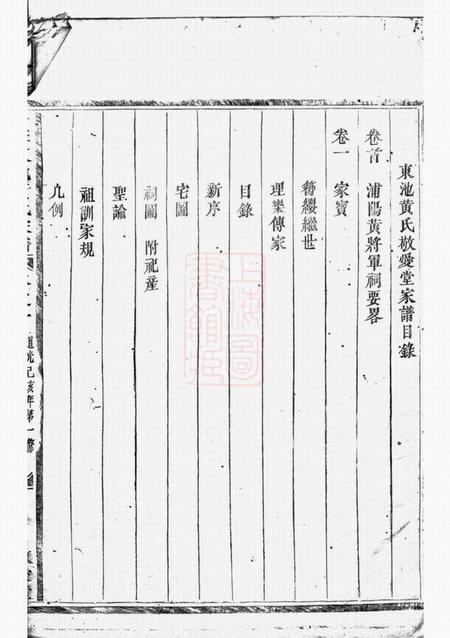 東池黃氏敬愛堂家譜目錄
卷首 浦陽黃將軍祠要畧
卷一 家寶
簪纓繼世
理樂傳家
目錄
新序
宅圖
祠圖 附祀產
聖諭
祖訓家規
凡例
道光己亥年第一修
上海圖書館藏